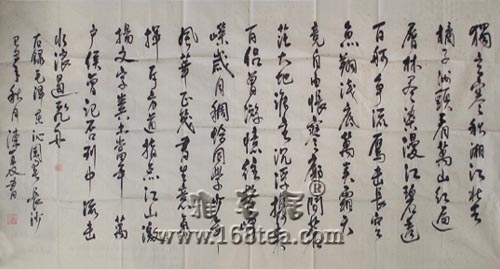 獨立寒秋湘江北去
橘子洲頭看萬山紅遍
層林盡染漫江碧透
百舸爭流鷹擊長空
魚翔淺底萬类霜天
競自由悵寥廓問蒼
茫大地誰主沉浮携来
百侣曾游憶往昔崢
嶸歲月稠恰同學少年
風華正茂書生意氣
揮斥方遒指点江山激
揚文字糞土當年萬
户侯曾記否到中流击
水浪遏飛舟
右録毛澤東沁園春長沙
年秋月陳書
®
www.168tea.com